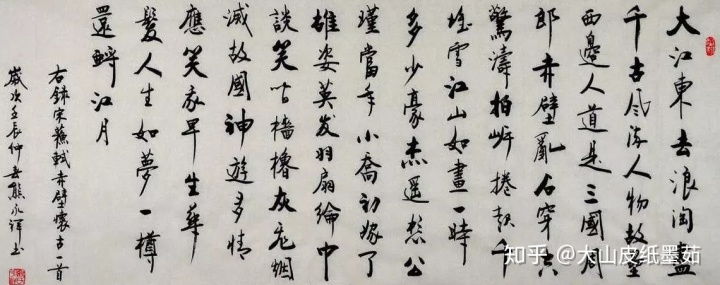 大江東去浪淘盡
千古風流人物故壘
西邊人道是三國周
郎赤壁亂石穿空
驚濤拍岸捲起千
堆雪江山如畫一時
多少豪杰遥想公
瑾當年小喬初嫁了
雄姿英发羽扇綸巾
談笑间檣櫓灰飛烟
滅故國神遊多情
應笑我早生華
髮人生如夢一樽
還酹江月
右錄宋蘇軾赤壁懷古一首
歲次壬辰仲熊永书
知乎 @大山皮纸墨茹